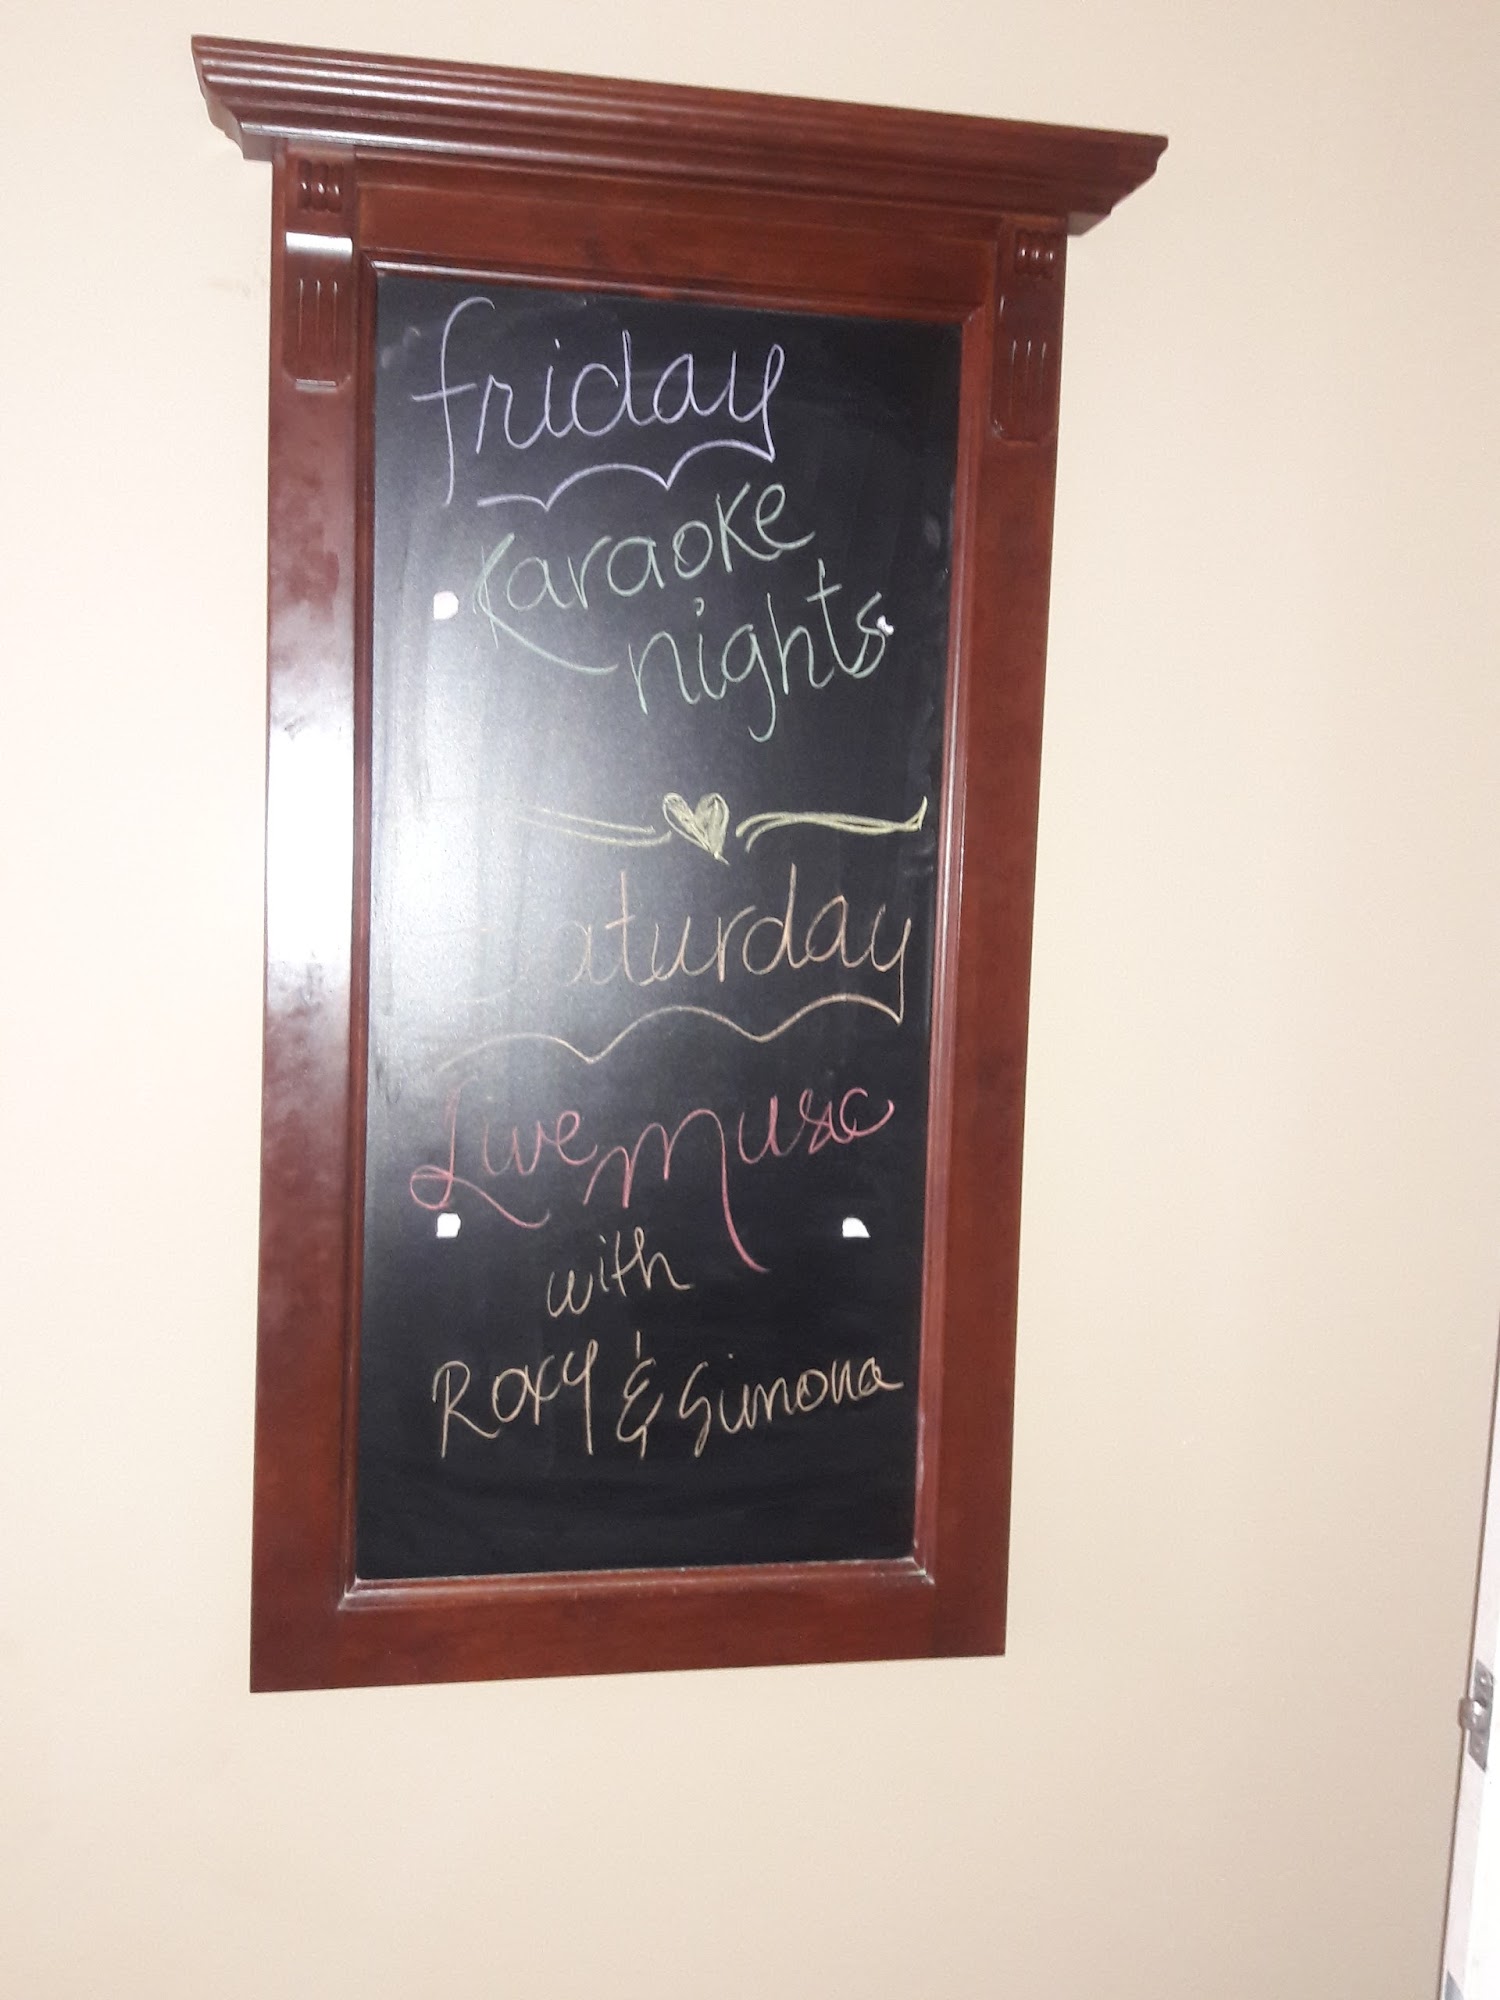 friday
Karaoke
nights
Saturday
Live Music
with
Roxy & Simona